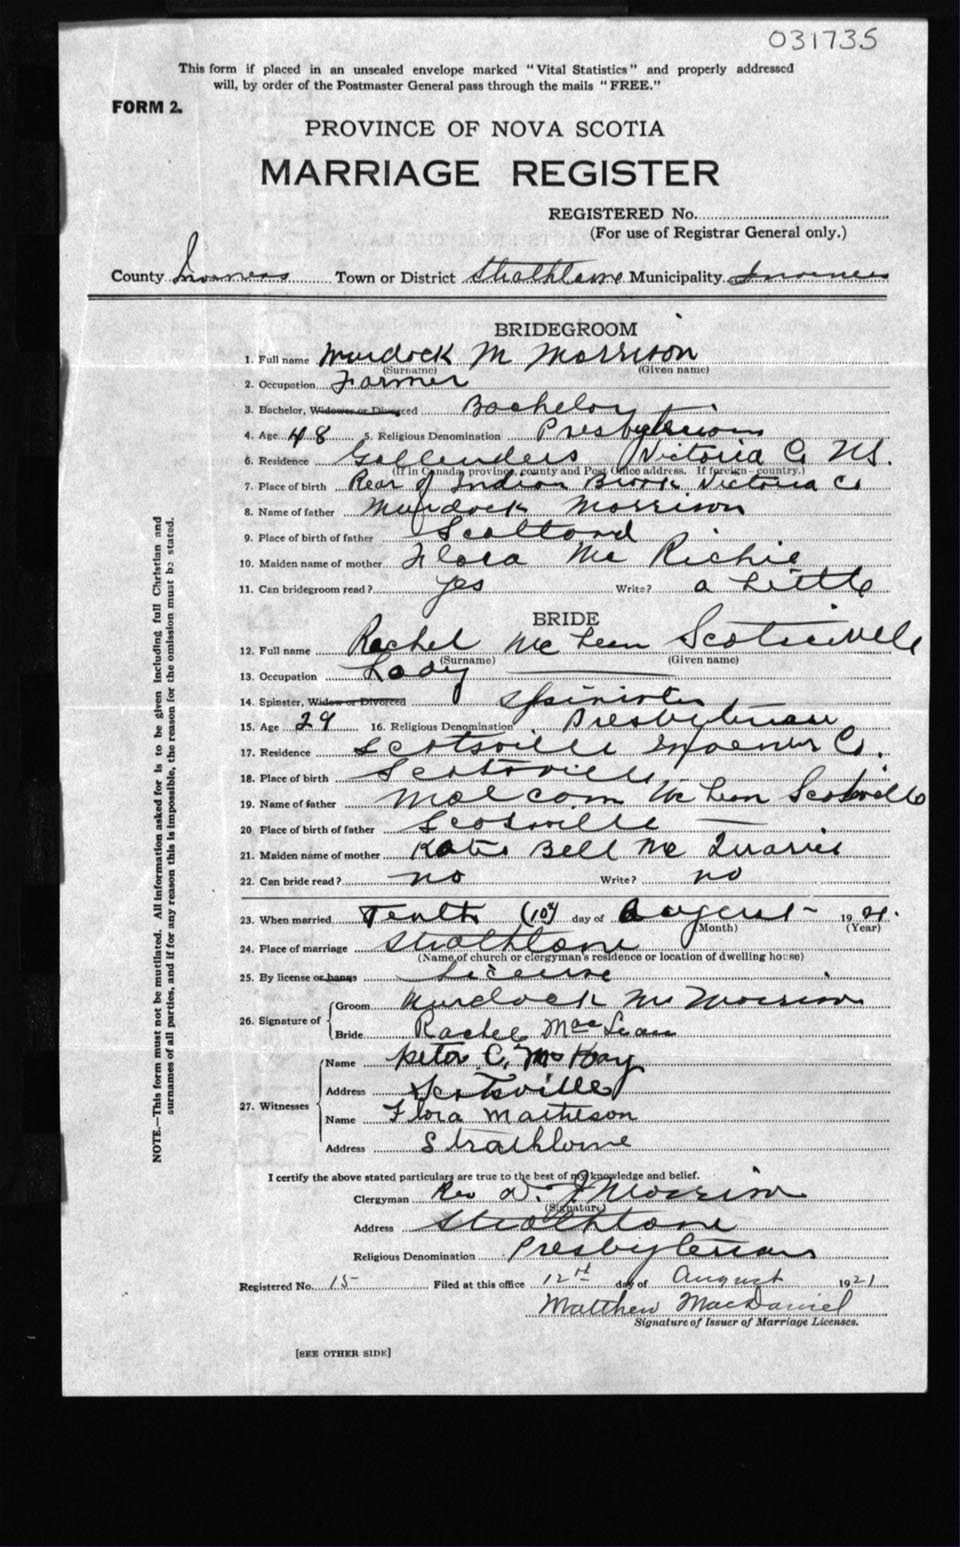 031735
This form if placed in an unsealed envelope marked "Vital Statistics" and properly addressed
will, by order of the Postmaster General pass through the mails "FREE."
FORM 2.
PROVINCE OF NOVA SCOTIA
MARRIAGE REGISTER
REGISTERED No.
(For use of Registrar General only.)
County Inverness Town or District Strathlorne Municipality Inverness
BRIDEGROOM
1. Full name Murdock M Morrison
(Surname) (Given name)
2. Occupation Farmer
3. Bachelor, Widower or Divorced Bachelor
4. Age 48 5. Religious Denomination Presbyterian
6. Residence Victoria Co NS.
(If in Canada, province, county and Post Office address. If foreign—country.)
7. Place of birth Rear of Indian Brook Victoria Co
8. Name of father Murdock Morrison
9. Place of birth of father Scotland
10. Maiden name of mother Flora Mc Richie
11. Can bridegroom read? yes Write? a little
BRIDE
12. Full name Rachel Mc Lean Scotsville
(Surname) (Given name)
13. Occupation Lady
14. Spinster, Widow or Divorced Spinister
15. Age 29 16. Religious Denomination Presbyterian
17. Residence Scotsville Inverness Co.
18. Place of birth Scotsville
19. Name of father Malcom Mc Lean Scotsville
20. Place of birth of father Scotsville
21. Maiden name of mother Katie Bell Mc Quarrie
22. Can bride read? no Write? no
23. When married Tenth (10) day of August 1921.
(Month) (Year)
24. Place of marriage Strathlorne
(Name of church or clergyman's residence or location of dwelling house)
25. By license or banns License
26. Signature of Groom Murdock M Morrison
Bride Rachel MacLean
27. Witnesses Name Peter C. McKay
Address Scotsville
Name Flora Matheson
Address Strathlorne
I certify the above stated particulars are true to the best of my knowledge and belief.
Clergyman Rev D. J Morrison
(Signature)
Address Strathlorne
Religious Denomination Presbyterian
Registered No. 15 Filed at this office 12rd day of August 1921
Matthew MacDaniel
Signature of Issuer of Marriage Licenses.
[SEE OTHER SIDE]
NOTE.—This form must not be mutilated. All information asked for is to be given including full Christian and
surnames of all parties, and if for any reason this is impossible, the reason for the omission must be stated.